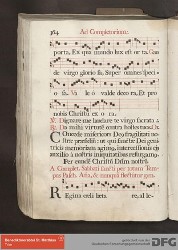 364 Ad Completorium.
porta, Ex qua mundo lux est orta. Gau-
de virgo gloriosa, Super omnes speci-
osa. Vale o valde decora, Et pro
nobis Christum exora.
V. Dignare me laudare te virgo sacrata.
R. Da mihi virtutem contra hostes tuos.
Concede misericors Deus fragilitati no-
stræ præsidium: ut qui sanctæ Dei geni-
tricis memoriam agimus, intercessionis eius
auxilio a nostris iniquitatibus resurgamus.
Per eundem Christum Dominum nostrum.
A Complet. Sabbati sancti per totum Tempus
REgina cæli læta re, alle-
Benediktinerabtei St. Matthias
Trier
DFG